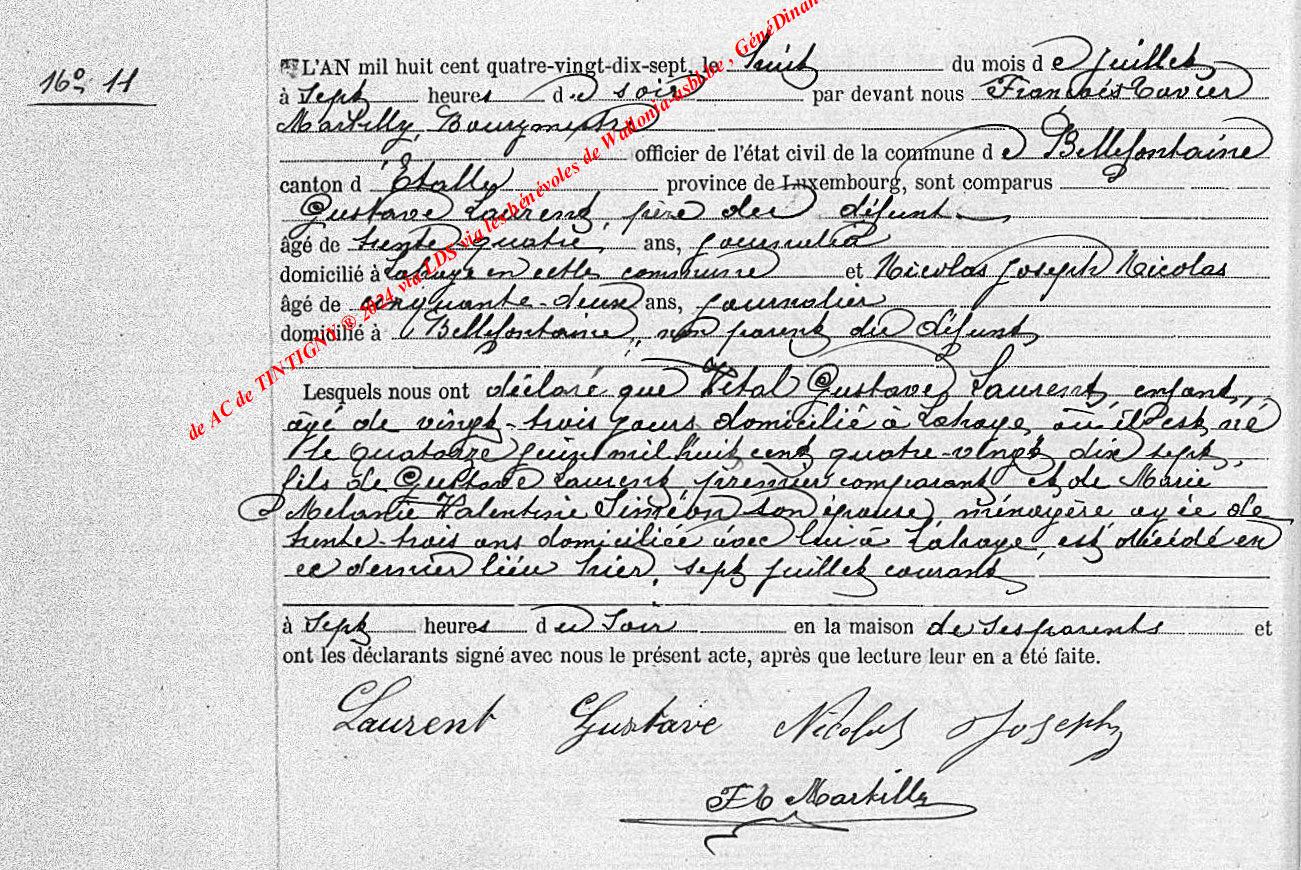 16º 11
L'AN mil huit cent quatre-vingt-dix-sept, le huit du mois de juillet
à sept heures de soir par devant nous François Xavier
Martilly, Bourgmestre
officier de l'état civil de la commune de Bellefontaine
canton d'Etalle province de Luxembourg, sont comparus
Gustave Laurent, père du défunt
âgé de trente quatre, ans, journalier
domicilié à Lahaye en cette commune et Nicolas Joseph Nicolas
âgé de cinquante-deux ans, journalier
domicilié à Bellefontaine, non parent du défunt,
Lesquels nous ont déclaré que Vital Gustave Laurent, enfant,
âgé de vingt-trois jours domicilié à Lahaye, où il est né
le quatorze juin mil huit cent quatre-vingt dix sept,
fils de Gustave Laurent premier comparant et de Marie
Melanie Valentine Siméon son épouse, ménagère agée de
trente-trois ans domiciliée avec lui à Lahaye, est décédé en
ce dernier lieu hier, sept juillet courant
à sept heures du soir en la maison de ses parents et
ont les déclarants signé avec nous le présent acte, après que lecture leur en a été faite.
Laurent Gustave Nicolas Joseph
FX Martilly
de AC de TINTIGNY ® 2024 via LDS via les bénévoles de Wallonia-asbl.be, GénéDinan